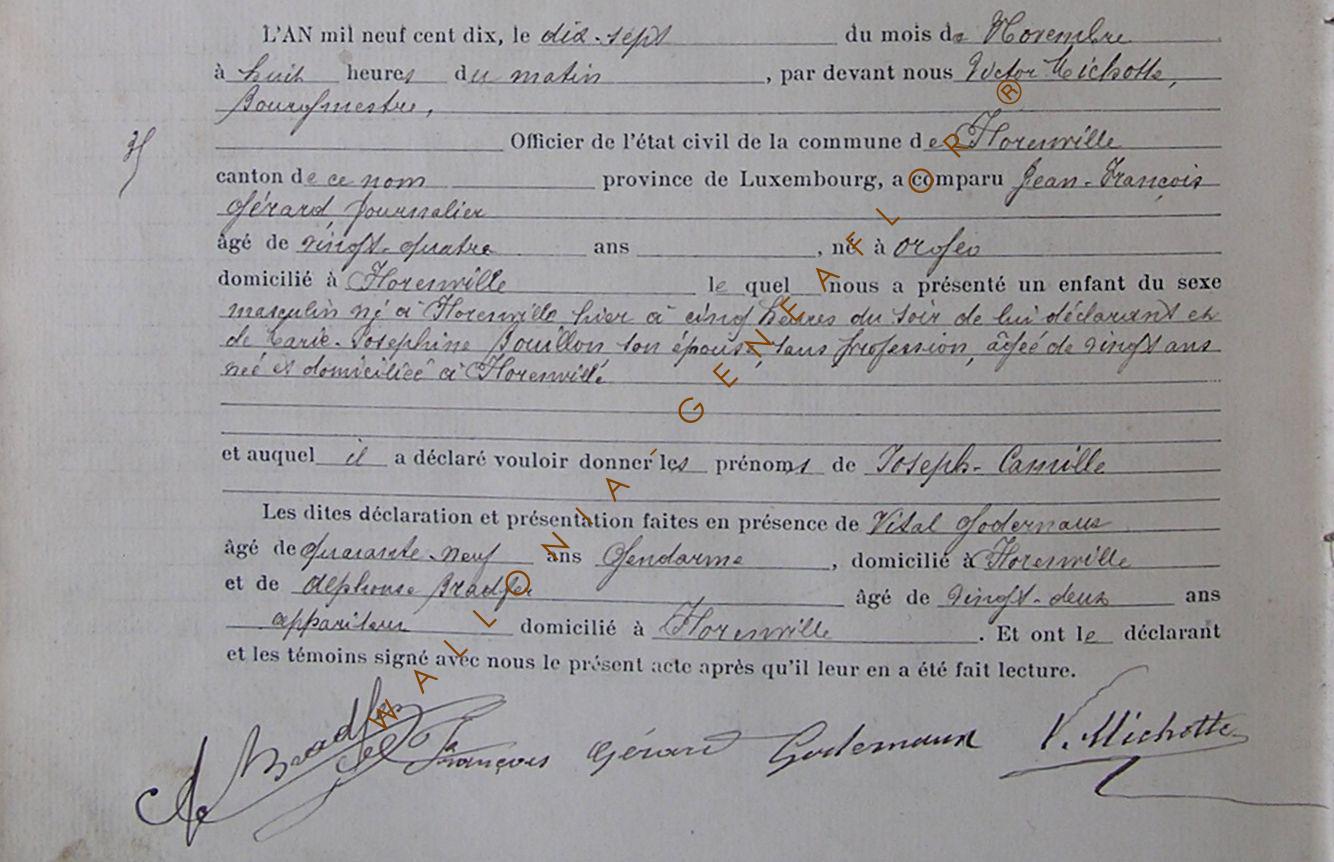 L'AN mil neuf cent dix, le dix-sept du mois de Novembre
à huit heures du matin, par devant nous Victor Michotte,
Bourgmestre,
Officier de l'état civil de la commune de Florenville
canton de ce nom province de Luxembourg, a comparu Jean-François
Gérard journalier
âgé de vingt-quatre ans, né à Orgeo
domicilié à Florenville lequel nous a présenté un enfant du sexe
masculin né à Florenville hier à cinq heures du soir de lui déclarant et
de Marie-Joséphine Bouillon son épouse, sans profession, âgée de vingt ans
née et domiciliée à Florenville
et auquel il a déclaré vouloir donner les prénoms de Joseph-Camille
Les dites déclaration et présentation faites en présence de Vital Godernaux
âgé de quarante-neuf ans Gendarme, domicilié à Florenville
et de Alphonse Bradfer âgé de vingt-deux ans
appariteur domicilié à Florenville. Et ont le déclarant
et les témoins signé avec nous le présent acte après qu'il leur en a été fait lecture.
A Bradfer François Gérard Godernaux V. Michotte
WALLONIA GENEAFLOR®